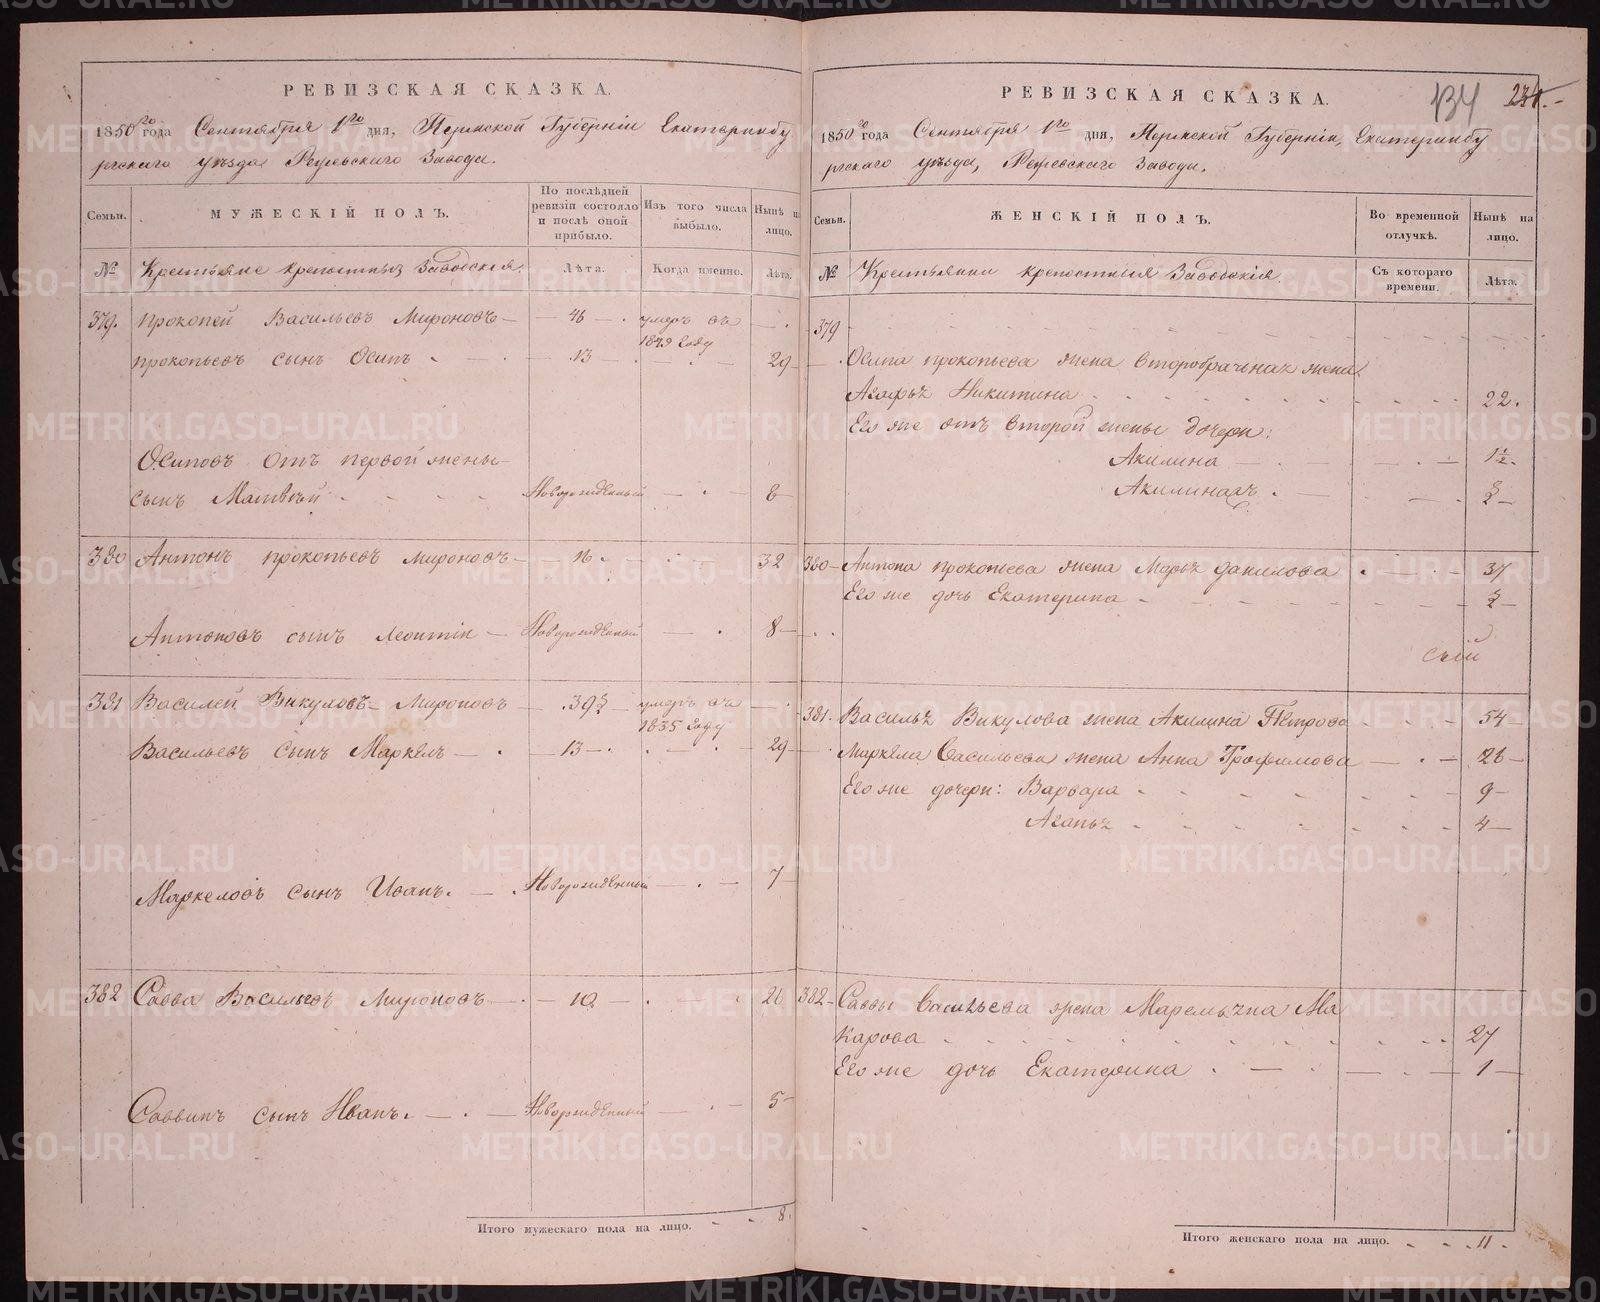 РЕВИЗСКАЯ СКАЗКА.
1850го года Сентября 1го дня, Пермской Губерніи Екатеринбу
ргскаго уѣзда Режевскаго Завода.
Семьи.
МУЖЕСКІЙ ПОЛЪ.
По послѣдней ревизіи состояло и послѣ оной прибыло.
Изъ того числа выбыло.
Нынѣ на лицо.
№ Крестьяне крепостныя Заводския.
Лѣта. Когда именно. Лѣта.
379. Прокопей Васильевъ Мироновъ 46 умеръ въ 1849 году
прокопьевъ сынъ Осипъ 13 29
Осиповъ отъ первой жены
сынъ Матвѣй новорожденный 8
380 Антонъ прокопьевъ мироновъ 16 32
Антоновъ сынъ леонтіи Новорожденный 8
381 Василей Викуловъ Мироновъ 39 умеръ въ 1835 году
Васильевъ сынъ Маркелъ 13 29
Маркеловъ сынъ Иванъ. Новорожденный 7
382 Савва Васильевъ Мироновъ 10 26
Саввинъ сынъ Иванъ. Новорожденный 5
Итого мужескаго пола на лицо. 8.
134 234.
РЕВИЗСКАЯ СКАЗКА.
1850го года Сентября 1го дня, Пермской Губерніи, Екатеринбу
ргскаго уѣзда, Режевскаго Завода.
Семьи.
ЖЕНСКІЙ ПОЛЪ.
Во временной отлучкѣ.
Нынѣ на лицо.
№ Крестьянки крепостныя Заводскія.
Съ котораго времени. Лѣта.
379
Осипа прокопьева жена второбрачная жена
Агафья Никитина 22.
Его же отъ второй жены дочери:
Акилина 1½.
380 Антона прокопьева жена Марья данилова 37
Его же дочь Екатерина
381. Василья Викулова жена Акилина Петрова 54
Маркела Васильева жена Анна Трофимова 26
Его же дочери: Варвара 9
Агапья 4
382 Саввы Васильева жена Маремьяна Ма
карова 27
Его же дочь Екатерина 1
Итого женскаго пола на лицо. 11.
METRIKI.GASO-URAL.RU